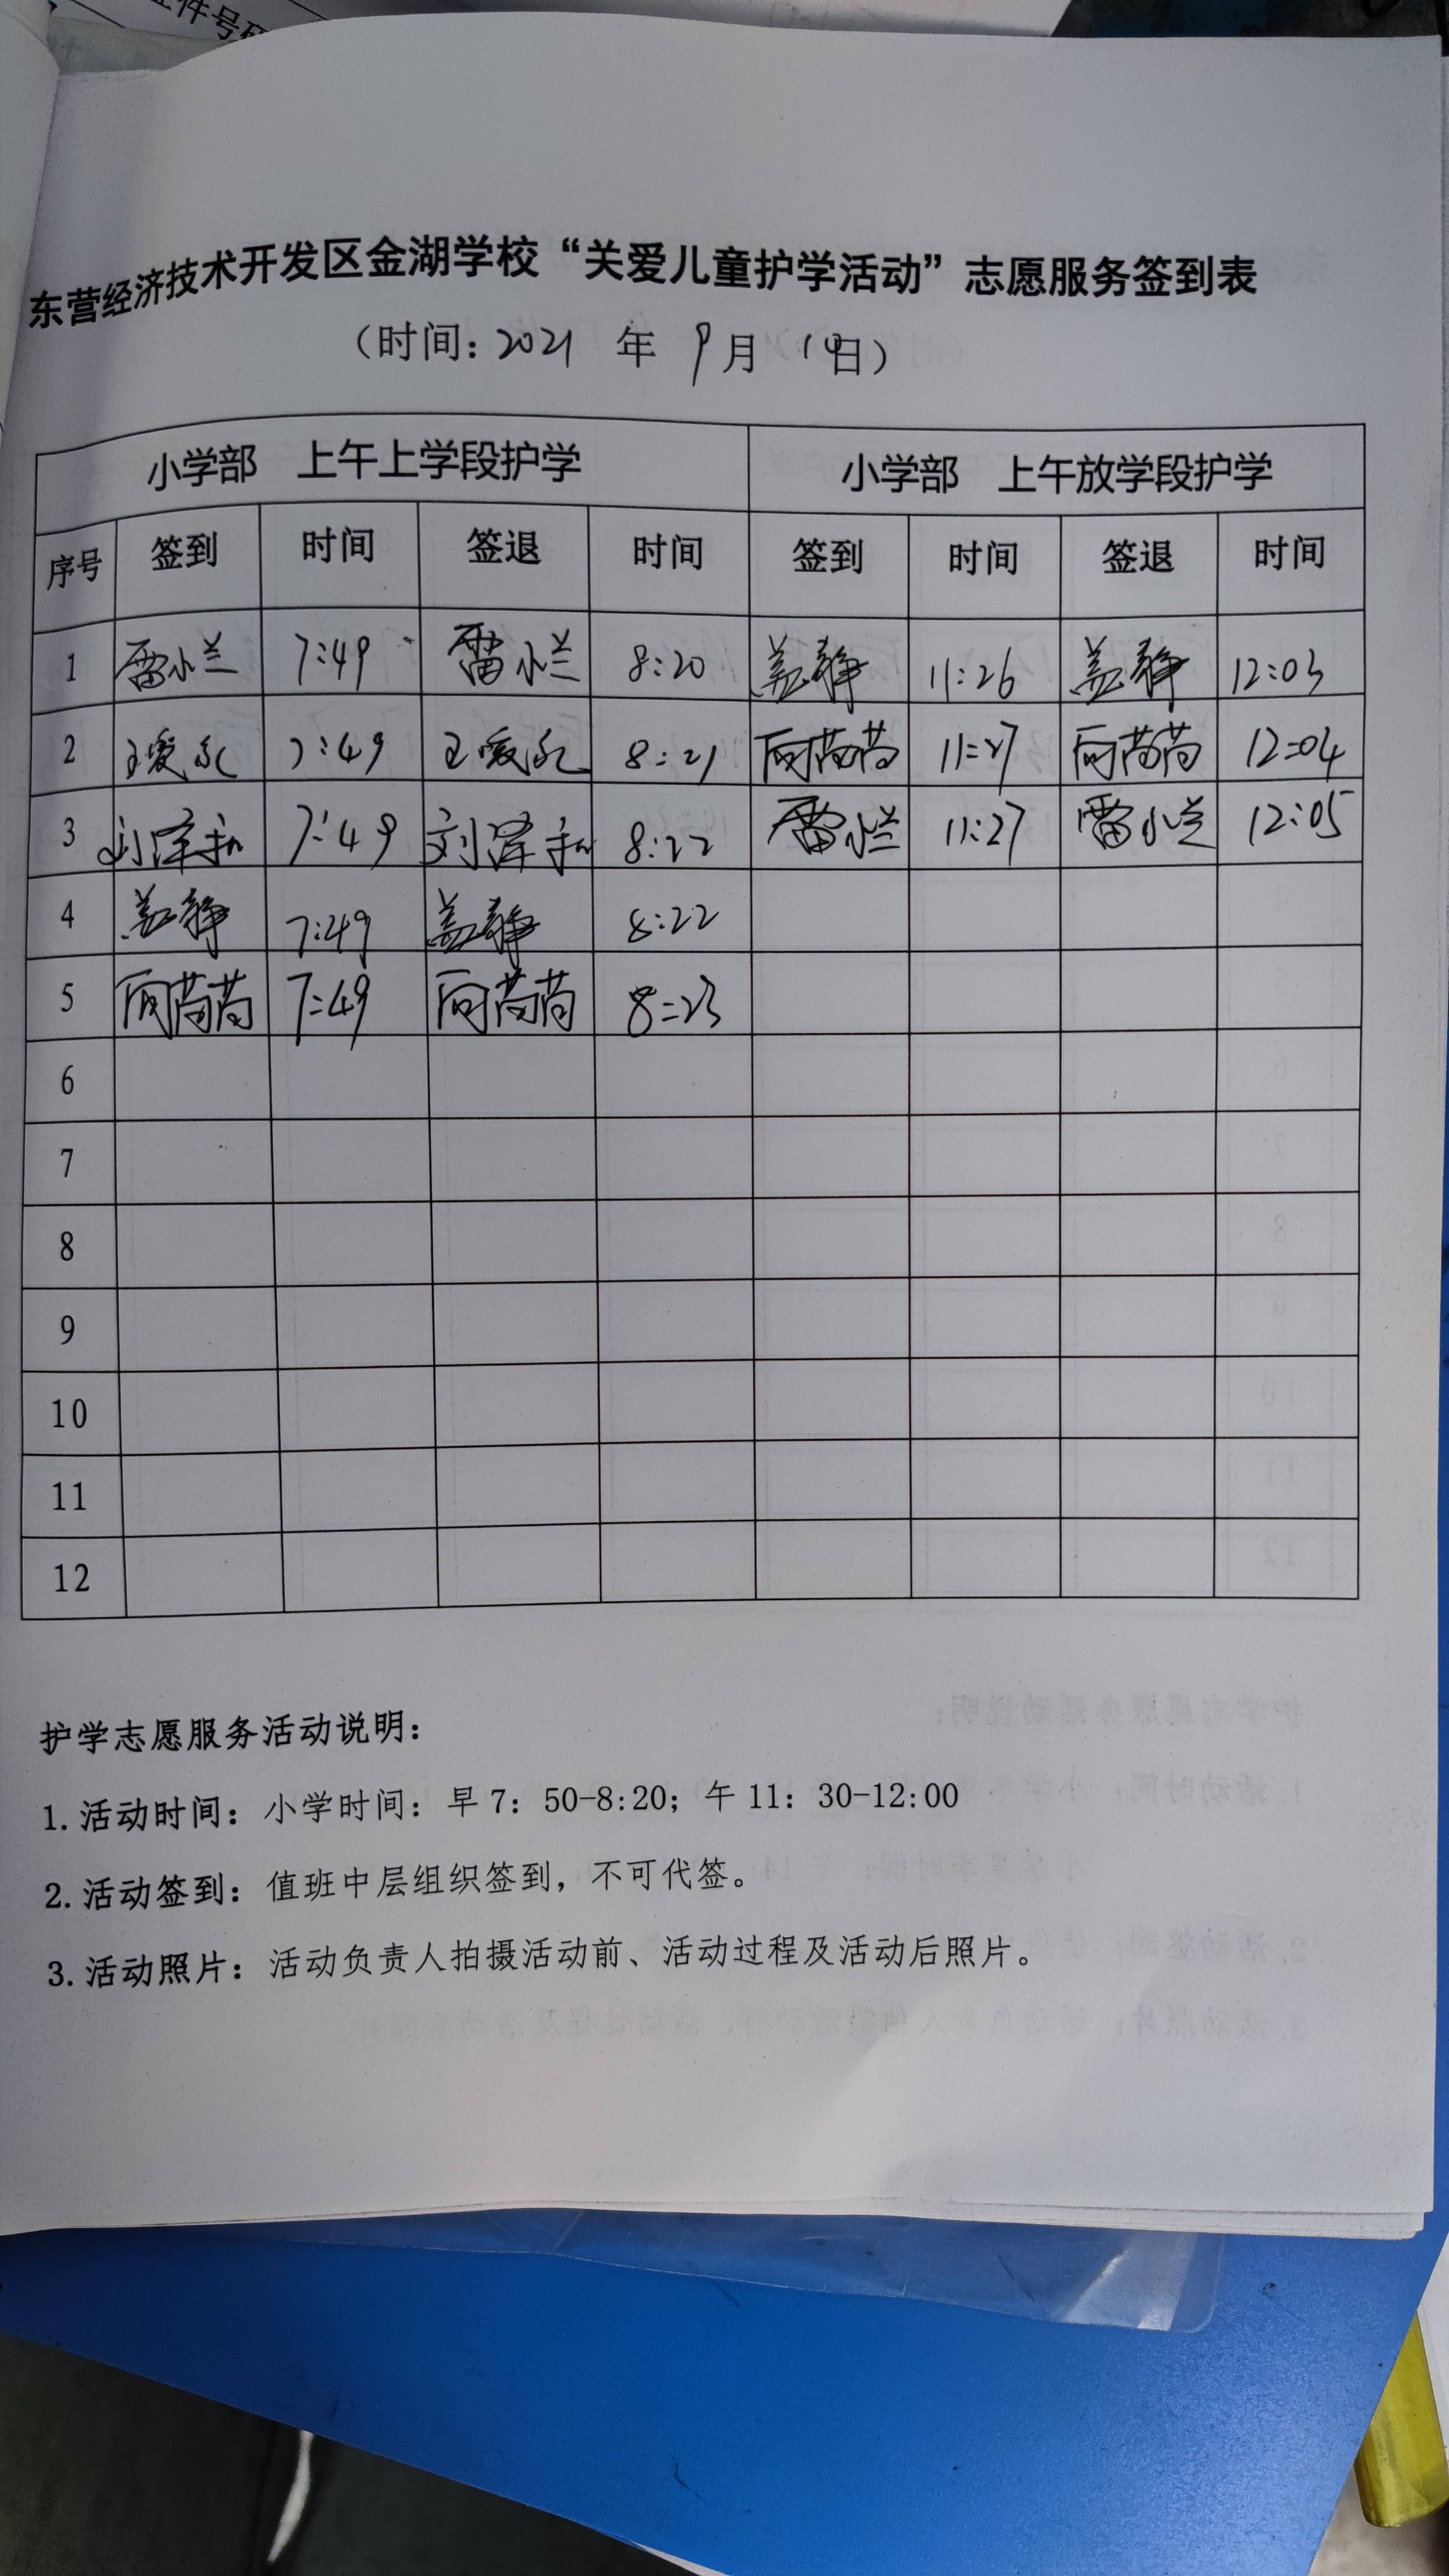 件号码
东营经济技术开发区金湖学校“关爱儿童护学活动”志愿服务签到表
（时间：2021 年 9月 14日）
小学部 上午上学段护学 小学部 上午放学段护学
序号 签到 时间 签退 时间 签到 时间 签退 时间
1 雷小兰 7:49 雷小兰 8:20 盖静 11:26 盖静 12:03
2 王爱永 7:49 王爱永 8:21 苘苘 11:27 苘苘 12:04
3 刘泽和 7:49 刘泽和 8:22 雷小兰 11:27 雷小兰 12:05
4 盖静 7:49 盖静 8:22
5 苘苘 7:49 苘苘 8:23
6
7
8
9
10
11
12
护学志愿服务活动说明：
1.活动时间：小学时间：早7：50-8:20；午11：30-12:00
2.活动签到：值班中层组织签到，不可代签。
3.活动照片：活动负责人拍摄活动前、活动过程及活动后照片。